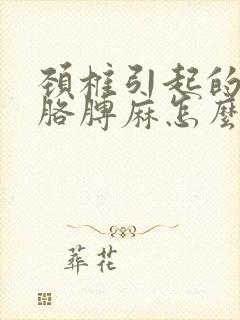 頸椎引起的
胳膊麻怎麼
葬花